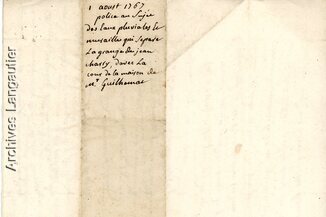 1 aoust 1767
police au Sujet
des Eaux pluviales Et
muraille qui Separe
La grange de jean
chasty, davec La
cour de la maison de
Mr Guilhamat
Archives Langautier